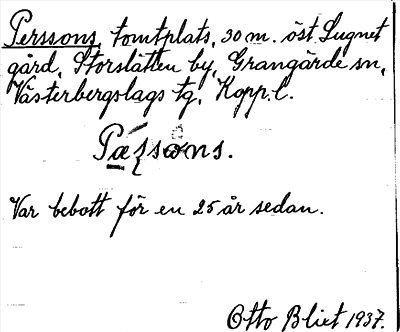 Perssons, tomtplats, 30 m. öst. Lugnet
gård, Storslätten by, Grangärde sn,
Västerbergslags tg, Kopp. l.
Pæ̱ʹʃsøns.
Var bebott för en 25 år sedan.
Otto Blixt 1937.